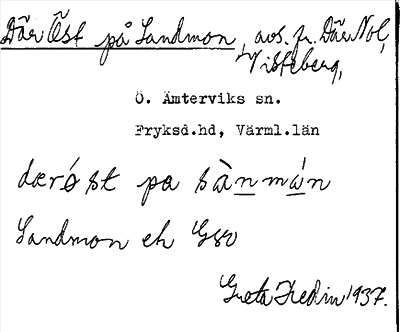 Där Öst på Sandmon, avs. fr. Där Nol,
Visteberg,
Ö. Ämterviks sn.
Fryksd.hd, Värml.län
dærǿst pa sànmán
Sandmon eh G80
Greta Hedin 1937.